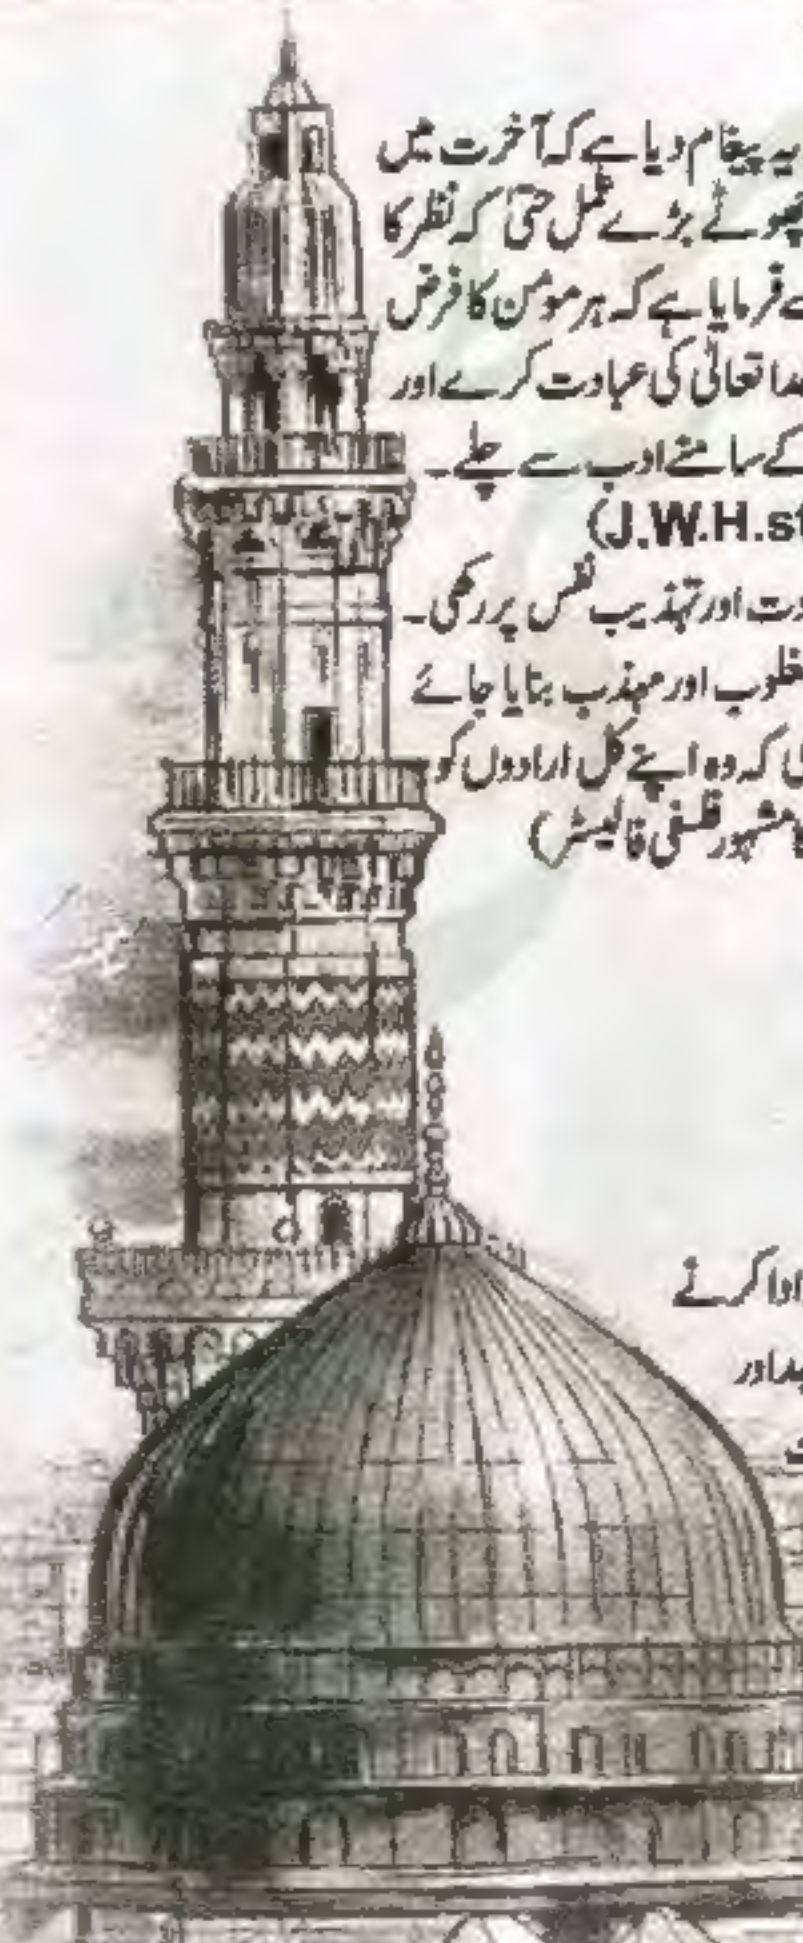 یہ پیغام دیا ہے کہ آخرت میں
چھوٹے بڑے عمل حتیٰ کہ نظر کا
نے فرمایا ہے کہ ہر مومن کا فرض
خدا تعالٰی کی عبادت کرے اور
کے سامنے ادب سے چلے۔
(J.W.H.st
اور تہذیب نفس پر رکھی۔
مغلوب اور مہذب بنایا جائے
کہ وہ اپنے کل ارادوں کو
مشہور فلسفی
ادا کرنے
اور